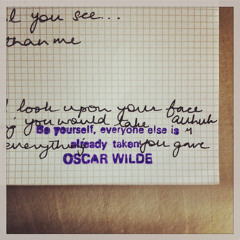 you see...
than me
I look upon your face
you would take auhuh
Be yourself, everyone else is
already taken
everything you gave
OSCAR WILDE